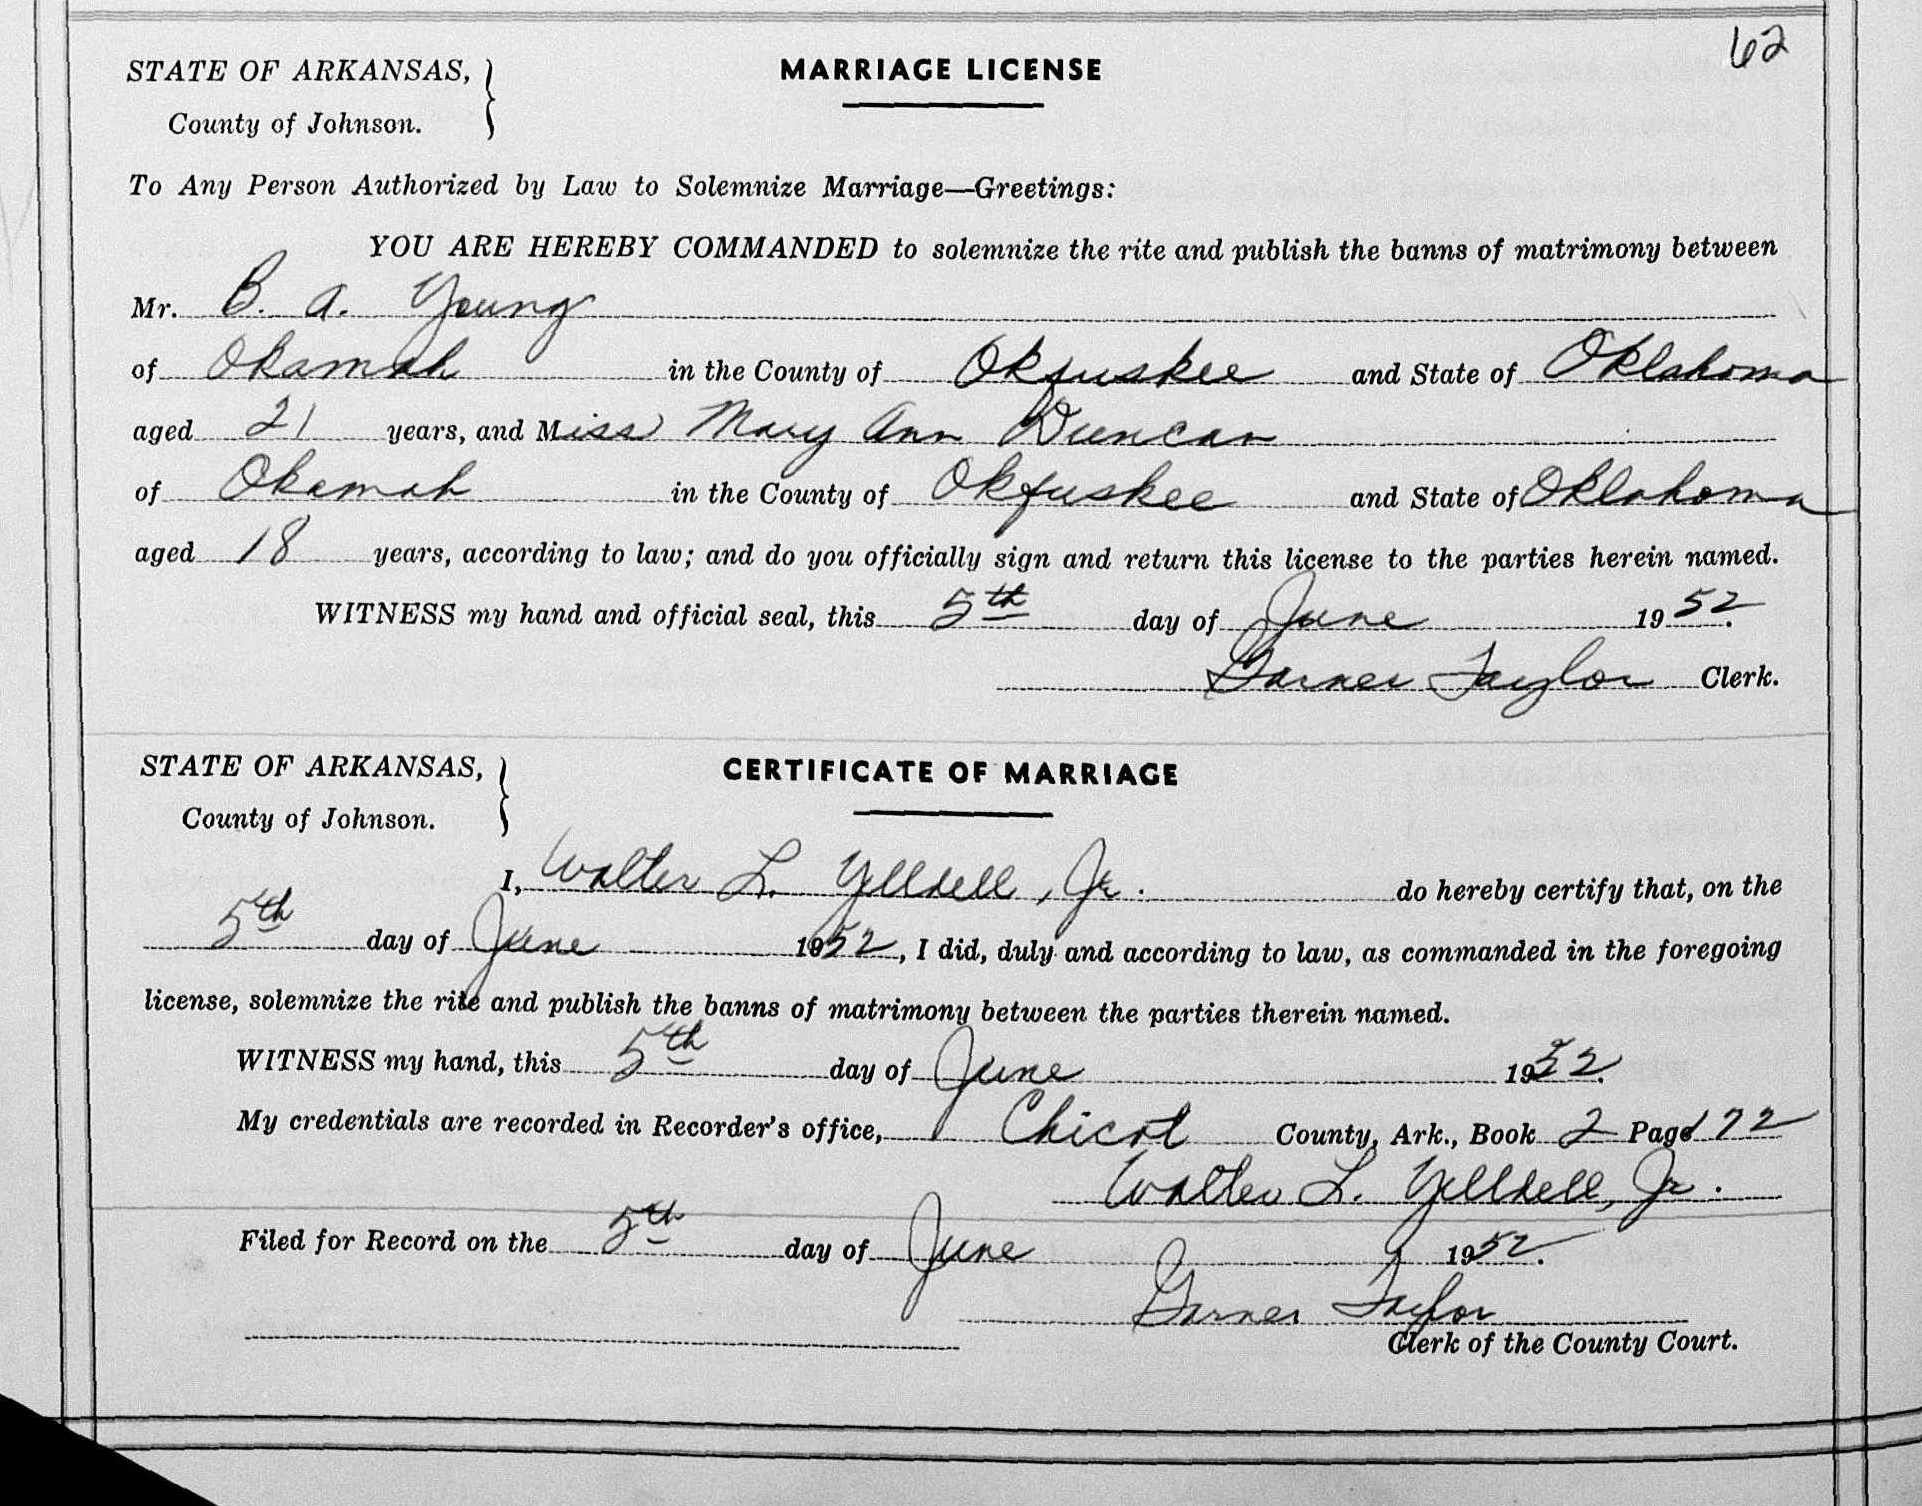 62
STATE OF ARKANSAS,
MARRIAGE LICENSE
County of Johnson.
To Any Person Authorized by Law to Solemnize Marriage—Greetings:
YOU ARE HEREBY COMMANDED to solemnize the rite and publish the banns of matrimony between
Mr. B. A. Young
of Okamah in the County of Okfuskee and State of Oklahoma
aged 21 years, and Miss Mary Ann Duncan
of Okemah in the County of Okfuskee and State of Oklahoma
aged 18 years, according to law; and do you officially sign and return this license to the parties herein named.
WITNESS my hand and official seal, this 5th day of June 1952.
Garner Taylor Clerk.
STATE OF ARKANSAS,
CERTIFICATE OF MARRIAGE
County of Johnson.
I, Walter L. Yelldell, Jr. do hereby certify that, on the
5th day of June 1952, I did, duly and according to law, as commanded in the foregoing
license, solemnize the rite and publish the banns of matrimony between the parties therein named.
WITNESS my hand, this 5th day of June 1952.
My credentials are recorded in Recorder's office, Chicot County, Ark., Book 2 Page 172
Walter L. Yelldell, Jr.
Filed for Record on the 5th day of June 1952.
Garner Taylor
Clerk of the County Court.